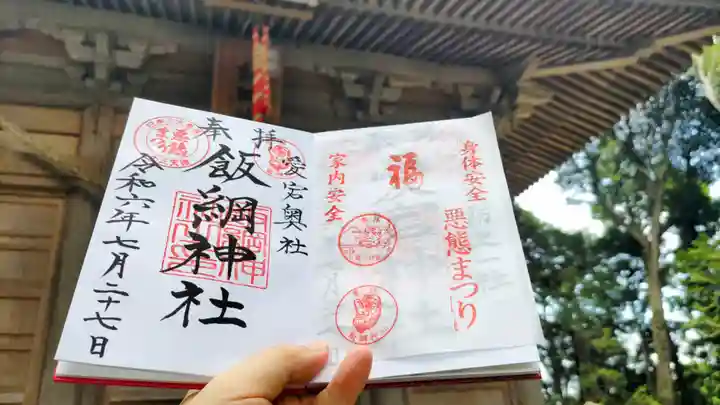 奉拝
愛宕奥社
飯綱神社
令和六年七月二十七日
身体安全
悪態まつり
福
家内安全